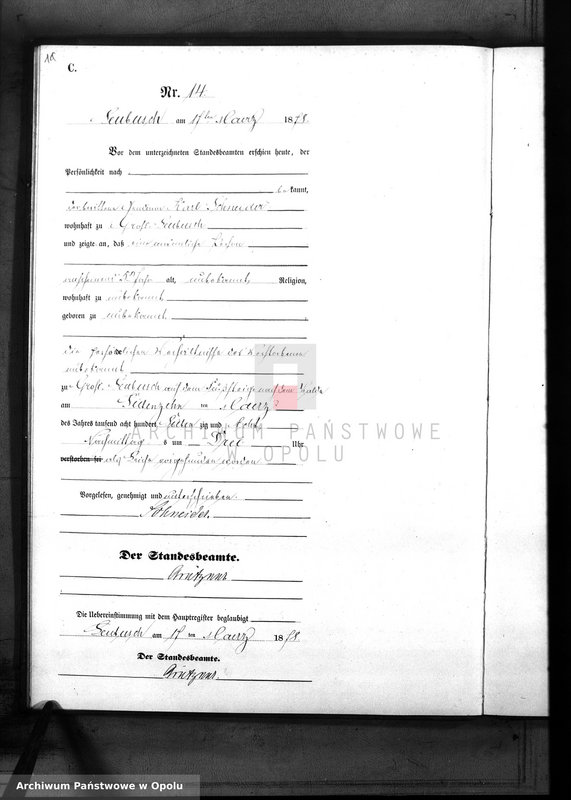 18
C.
Nr. 14
Leubusch am 17ten Maerz 1878.
Vor dem unterzeichneten Standesbeamten erschien heute, der
Persönlichkeit nach
kannt,
Karl Schneider
wohnhaft zu Groß-Leubusch
und zeigte an, daß eine männliche Person
alt, unbekannt Religion,
wohnhaft zu unbekannt
geboren zu unbekannt
die des Verstorbenen
unbekannt
zu Groß-Leubusch auf dem
am Siebenzehn ten Maerz
des Jahres tausend acht hundert sieben zig und acht
Nachmittag s um Drei Uhr
verstorben sei als Leiche vorgefunden worden
Vorgelesen, genehmigt und unterschrieben
Schneider.
Der Standesbeamte.
Die Uebereinstimmung mit dem Hauptregister beglaubigt
Leubusch am 17 ten Maerz 1878.
Der Standesbeamte.
ARCHIWUM PAŃSTWOWE
W OPOLU
Archiwum Państwowe w Opolu